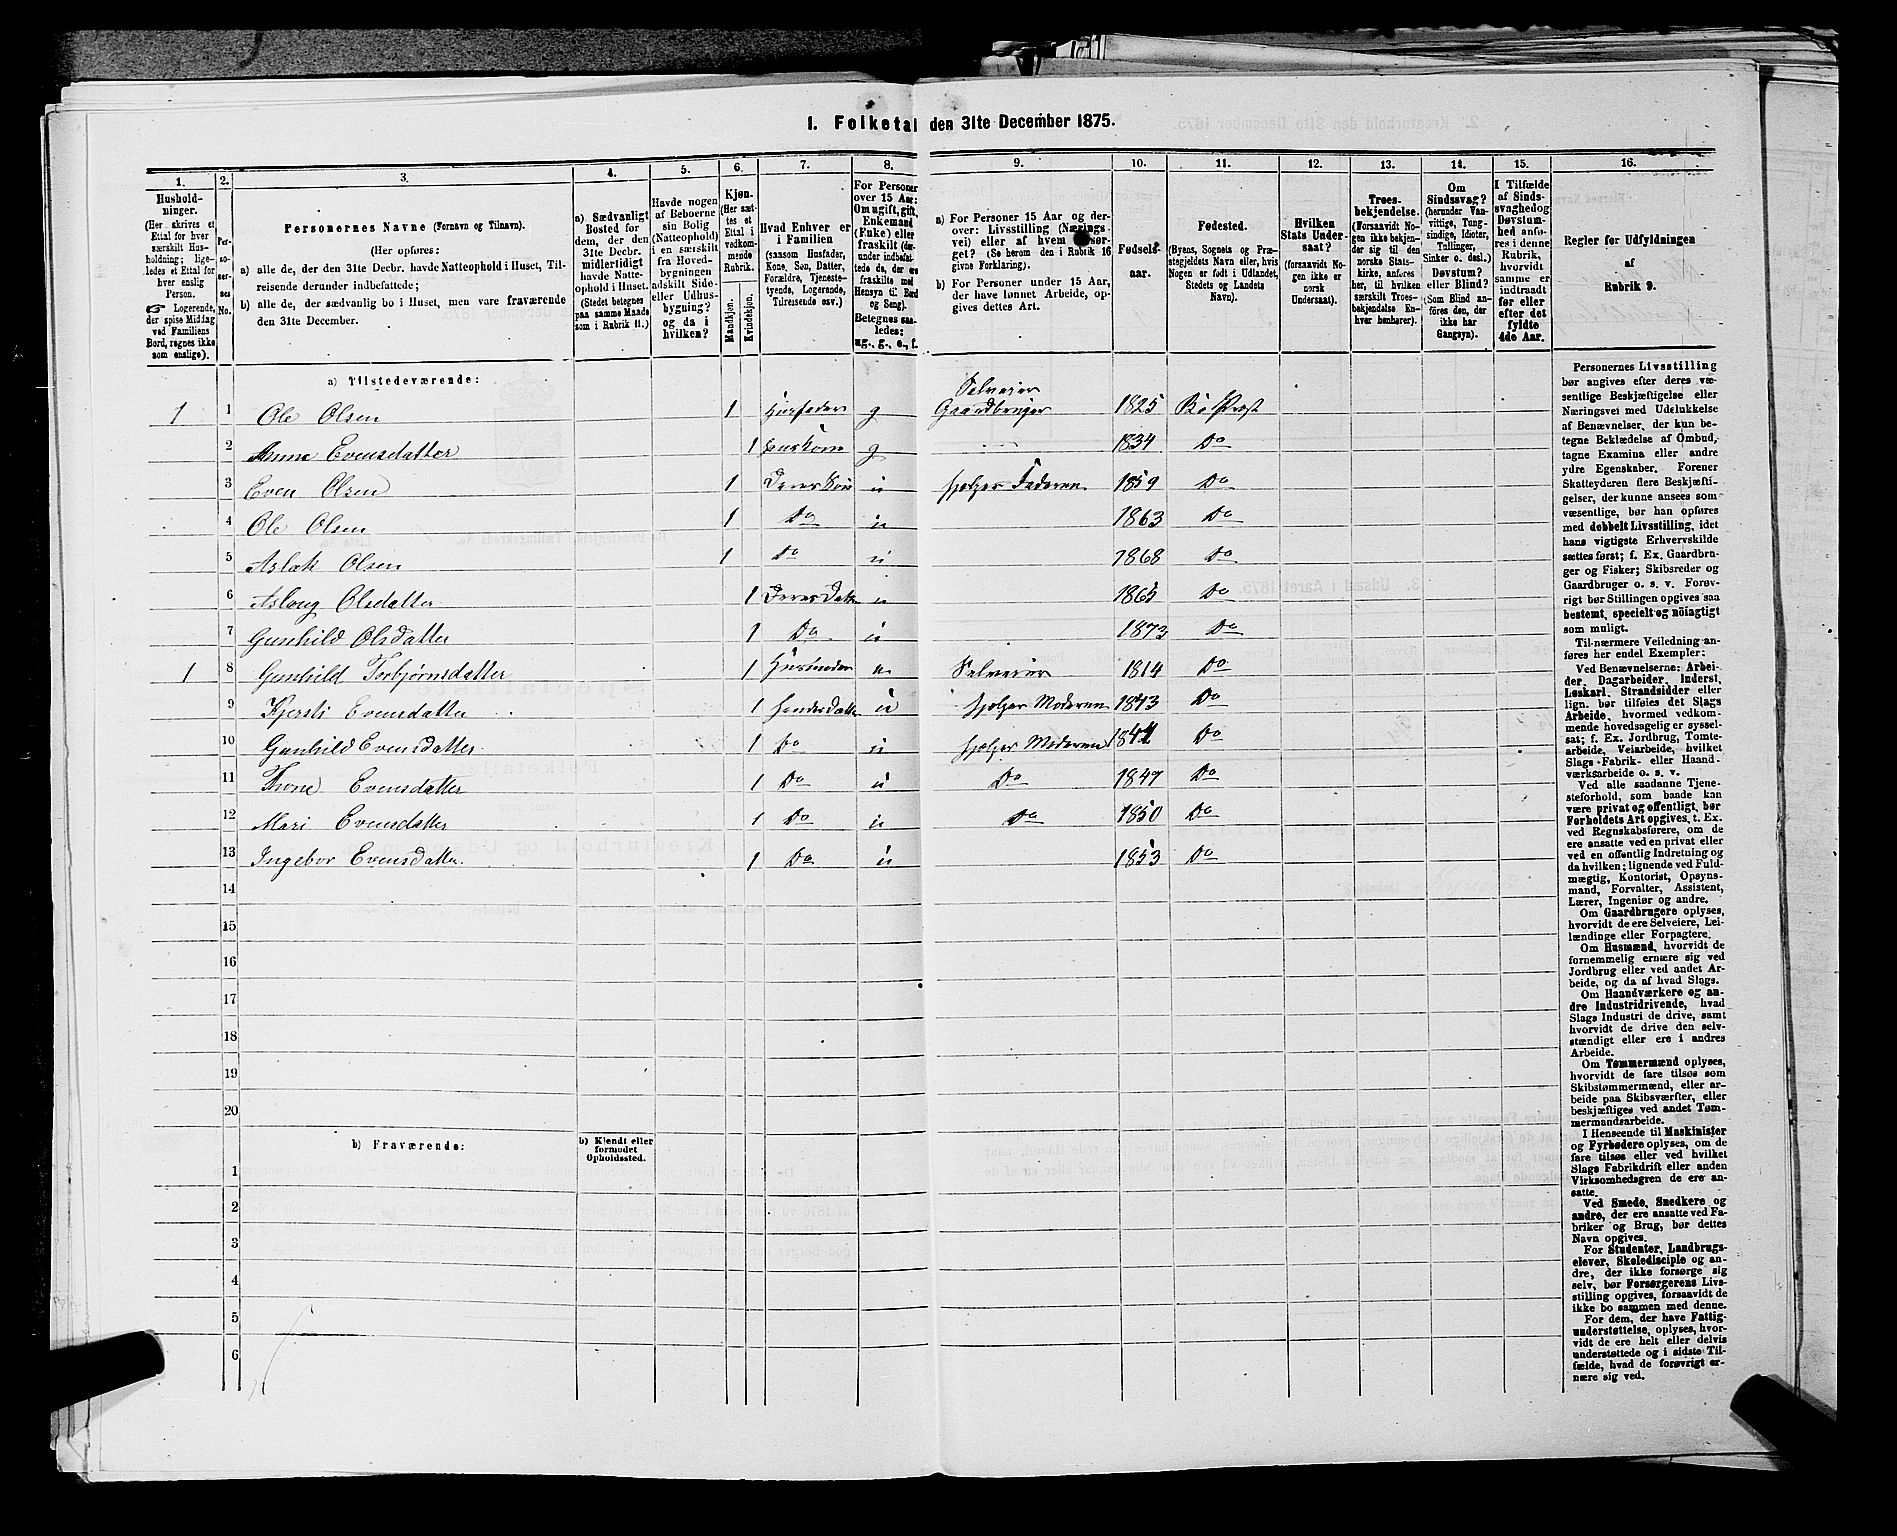 1. Folketal den 31te December 1875.
1.
2.
3.
4.
5.
6.
7.
8.
9.
10.
11.
12.
13.
14.
15.
16.
Hushold-
ninger.
(Her skrives et
Ettal for hver
særskilt Hus-
holdning; lige-
ledes et Ettal for
hver enslig
Person.
☞ Logerende,
der spise Middag
ved Familiens
Bord, regnes ikke
som enslige).
Per-
so-
ner-
nes
No.
Personernes Navne (Fornavn og Tilnavn).
(Her opføres:
a) alle de, der den 31te Decbr. havde Natteophold i Huset, Til-
reisende derunder indbefattede;
b) alle de, der sædvanlig bo i Huset, men vare fraværende
den 31te December.
a) Sædvanligt
Bosted for
dem, der den
31te Decbr.
midlertidigt
havde Natte-
ophold i Huset.
(Stedet betegnes
paa samme Maade
som i Rubrik 11.)
Havde nogen
af Beboerne
sin Bolig
(Natteophold)
i en særskilt
fra Hoved-
bygningen
adskilt Side-
eller Udhus-
bygning?
og da i
hvilken?
Kjøn.
(Her sæt-
tes et
Ettal i
vedkom-
mende
Rubrik.
Mandkjøn.
Kvindekjøn.
Hvad Enhver er
i Familien
(saasom Husfader,
Kone, Søn, Datter,
Forældre, Tjeneste-
tyende, Logerende,
Tilreisende osv.)
For Personer
over 15 Aar:
Om ugift, gift,
Enkemand
(Enke) eller
fraskilt (der-
under indbefat-
tede de, der ere
fraskilte med
Hensyn til Bord
og Seng).
Betegnes saa-
ledes:
ug., g., e., f.
a) For Personer 15 Aar og der-
over: Livsstilling (Nærings-
vei) eller af hvem forsør-
get? (Se herom den i Rubrik 16
givne Forklaring).
b) For Personer under 15 Aar,
der have lønnet Arbeide, op-
gives dettes Art.
Fødsels-
aar.
Fødested.
(Byens, Sognets og Præ-
stegjeldets Navn eller, hvis
Nogen er født i Udlandet,
Stedets og Landets
Navn).
Hvilken
Stats Under-
saat?
(forsaavidt No-
gen ikke er
norsk
Undersaat).
Troes-
bekjendelse.
(Forsaavidt No-
gen ikke bekjen-
der sig til den
norske Stats-
kirke, anføres
her, til hvilken
særskilt Troes-
bekjendelse En-
hver henhører).
Om
Sindssvag?
(herunder Van-
vittige, Tung-
sindige, Idioter,
Tullinger,
Sinker o. desl.)
Døvstum?
eller Blind?
(Som Blind an-
føres den, der
ikke har
Gangsyn).
I Tilfælde
af Sinds-
svaghed og
Døvstum-
hed anfø-
res i denne
Rubrik,
hvorvidt
samme er
indtraadt
før eller
efter det
fyldte
4de Aar.
Regler for Udfyldningen
af
Rubrik 9.
a) Tilstedeværende:
1 1 Ole Olsen 1 Husfader g Selveier Gaardbruger 1825 Bø Præst
2 Anne Evensdatter 1 Huskone g — 1834 Do
3 Even Olsen 1 Deres Søn u hjelper Faderen 1859 Do
4 Ole Olsen 1 Do u 1863 Do
5 Aslak Olsen 1 do u 1868 Do
6 Aslaug Olsdatter 1 Deres Datter u 1865 Do
7 Gunhild Olsdatter 1 Do u 1873 Do
1 8 Gunhild Torbjørnsdatter 1 Husmoder e Selveier 1814 Do
9 Kjersti Evensdatter 1 Hendes Datter u hjelper Moderen 1843 Do
10 Gunhild Evensdatter 1 Do u hjelper Moderen 1844 Do
11 Thone Evensdatter 1 Do u Do 1847 Do
12 Mari Evensdatter 1 Do u Do 1850 Do
13 Ingebor Evensdatter 1 Do u 1853 Do
14
15
16
17
18
19
20
b) Fraværende:
b) Kjendt eller
formodet
Opholdssted.
1
2
3
4
5
6
Personernes Livsstilling
bør angives efter deres væ-
sentlige Beskjæftigelse eller
Næringsvei med Udelukkelse
af Benævnelser, der kun be-
tegne Beklædelse af Ombud,
tagne Examina eller andre
ydre Egenskaber. Forener
Skatteyderen flere Beskjæfti-
gelser, der kunne ansees som
væsentlige, bør han opføres
med dobbelt Livsstilling, idet
hans vigtigste Erhvervskilde
sættes først; f. Ex. Gaardbru-
ger og Fisker; Skibsreder og
Gaardbruger o. s. v. Forøv-
rigt bør Stillingen opgives saa
bestemt, specielt og nöiagtigt
som muligt.
Til nærmere Veiledning an-
føres her endel Exempler:
Ved Benævnelserne: Arbei-
der, Dagarbeider, Inderst,
Løskarl, Strandsidder eller
lign. bør tilføies det Slags
Arbeide, hvormed vedkom-
mende hovedsagelig er syssel-
sat; f. Ex. Jordbrug, Tomte-
arbeide, Veiarbeide, hvilket
Slags Fabrik- eller Haand-
værksarbeide o. s. v.
Ved alle saadanne Tjene-
steforhold, som baade kan
være privat og offentligt, bør
Forholdets Art opgives, t. Ex.
ved Regnskabsførere, om de
ere ansatte ved en privat eller
ved en offentlig Indretning og
da hvilken; lignende ved Fuld-
mægtig, Kontorist, Opsyns-
mand, Forvalter, Assistent,
Lærer, Ingeniør og andre.
Om Gaardbrugere oplyses,
hvorvidt de ere Selveiere, Lei-
lændinge eller Forpagtere.
Om Husmænd, hvorvidt de
fornemmelig ernære sig ved
Jordbrug eller ved andet Ar-
beide, og da af hvad Slags.
Om Haandværkere og an-
dre Industridrivende, hvad
Slags Industri de drive, samt
hvorvidt de drive den selv-
stændigt eller ere i andres
Arbeide.
Om Tømmermænd oplyses,
hvorvidt de fare tilsøs som
Skibstømmermænd, eller ar-
beide paa Skibsværfter, eller
beskjæftiges ved andet Tøm-
mermandsarbeide.
I Henseende til Maskinister
og Fyrbødere oplyses, om de
fare tilsøs eller ved hvilket
Slags Fabrikdrift eller anden
Virksomhedsgren de ere an-
satte.
Ved Smede, Snedkere og
andre, der ere ansatte ved Fa-
briker og Brug, bør dettes
Navn opgives.
For Studenter, Landbrugs-
elever, Skoledisciple og an-
dre, der ikke forsørge sig
selv, bør Forsørgerens Livs-
stilling opgives, forsaavidt de
ikke bo sammen med denne.
For dem, der have Fattig-
understøttelse, oplyses, hvor-
vidt de ere helt eller delvis
understøttede og i sidste Til-
fælde, hvad de forøvrigt er-
nære sig ved.